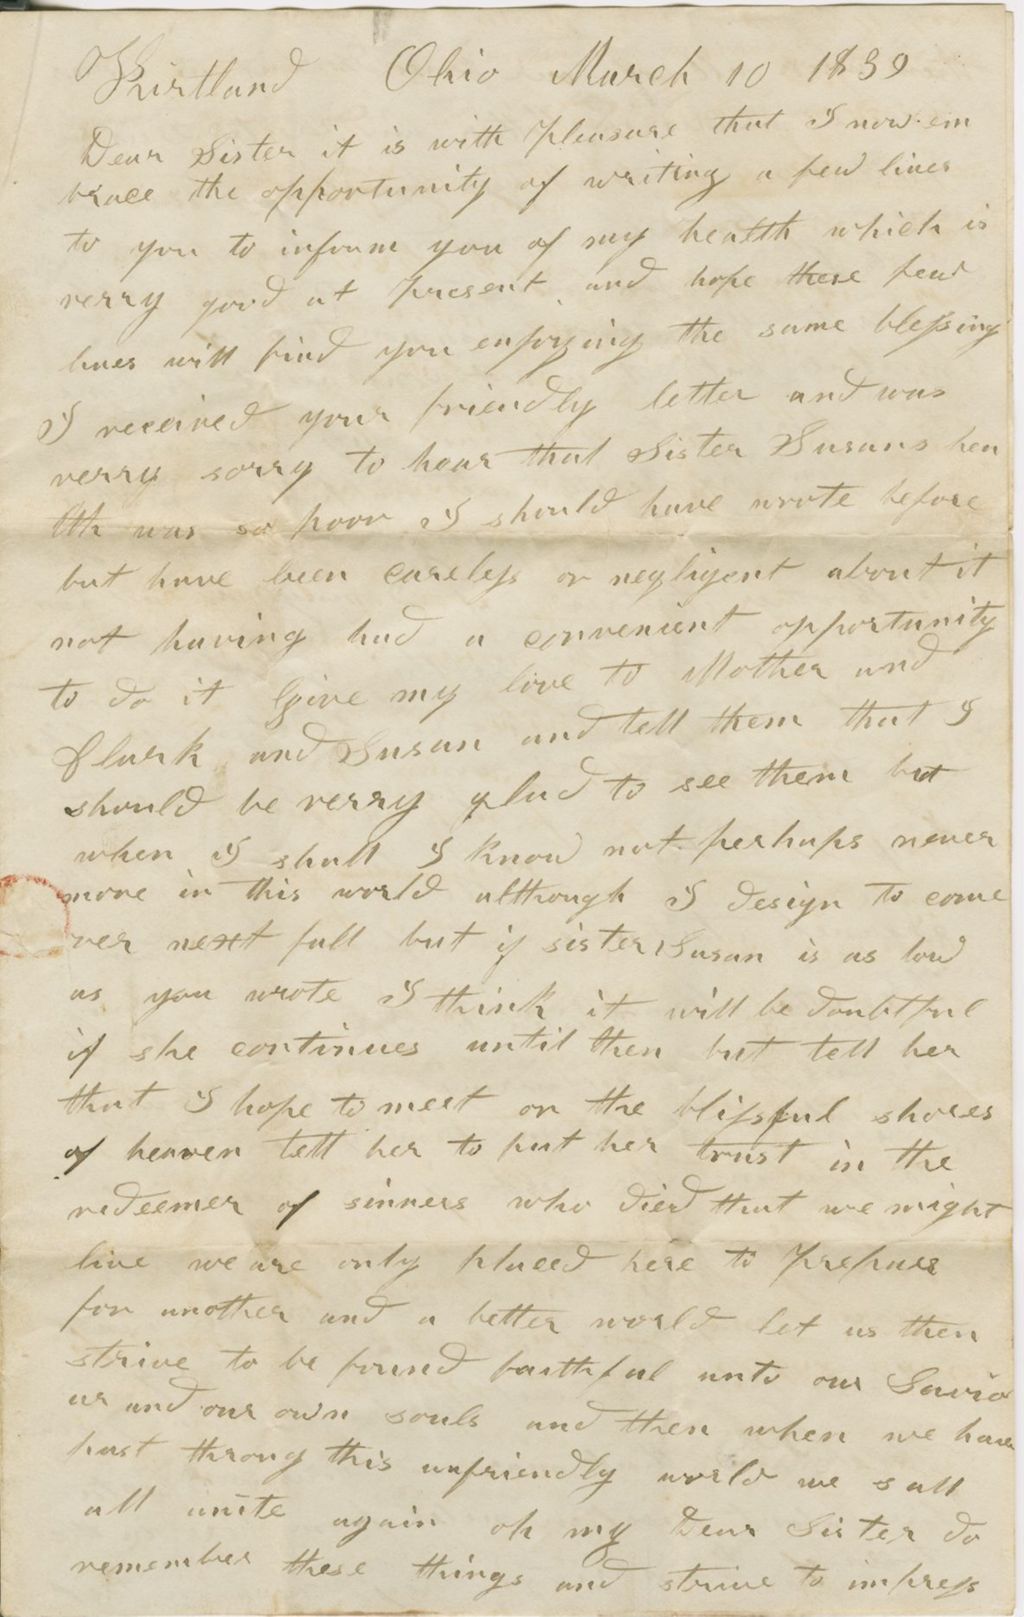 Kirtland Ohio March 10 1839
Dear Sister it is with pleasure that I now em
brace the opportunity of writing a few lines
to you to inform you of my health which is
verry good at present and hope these few
lines will find you enjoying the same blessing
I received your friendly letter and was
verry sorry to hear that Sister Susans hea
lth was so poor I should have wrote before
but have been careless or negligent about it
not having had a convenient opportunity
to do it Give my love to Mother and
Clark and Susan and tell them that I
should be verry glad to see them but
when I shall I know not perhaps never
more in this world although I design to come
ver next fall but if sister Susan is as low
as you wrote I think it will be doubtful
if she continues until then but tell her
that I hope to meet on the blissful shores
of heaven tell her to put her trust in the
redeemer of sinners who died that we might
live we are only placed here to prepare
for another and a better world let us then
strive to be found faithful unto our Savio
ur and our own souls and then when we have
past throug this unfriendly world we sall
all unite again oh my Dear Sister do
remember these things and strive to impress